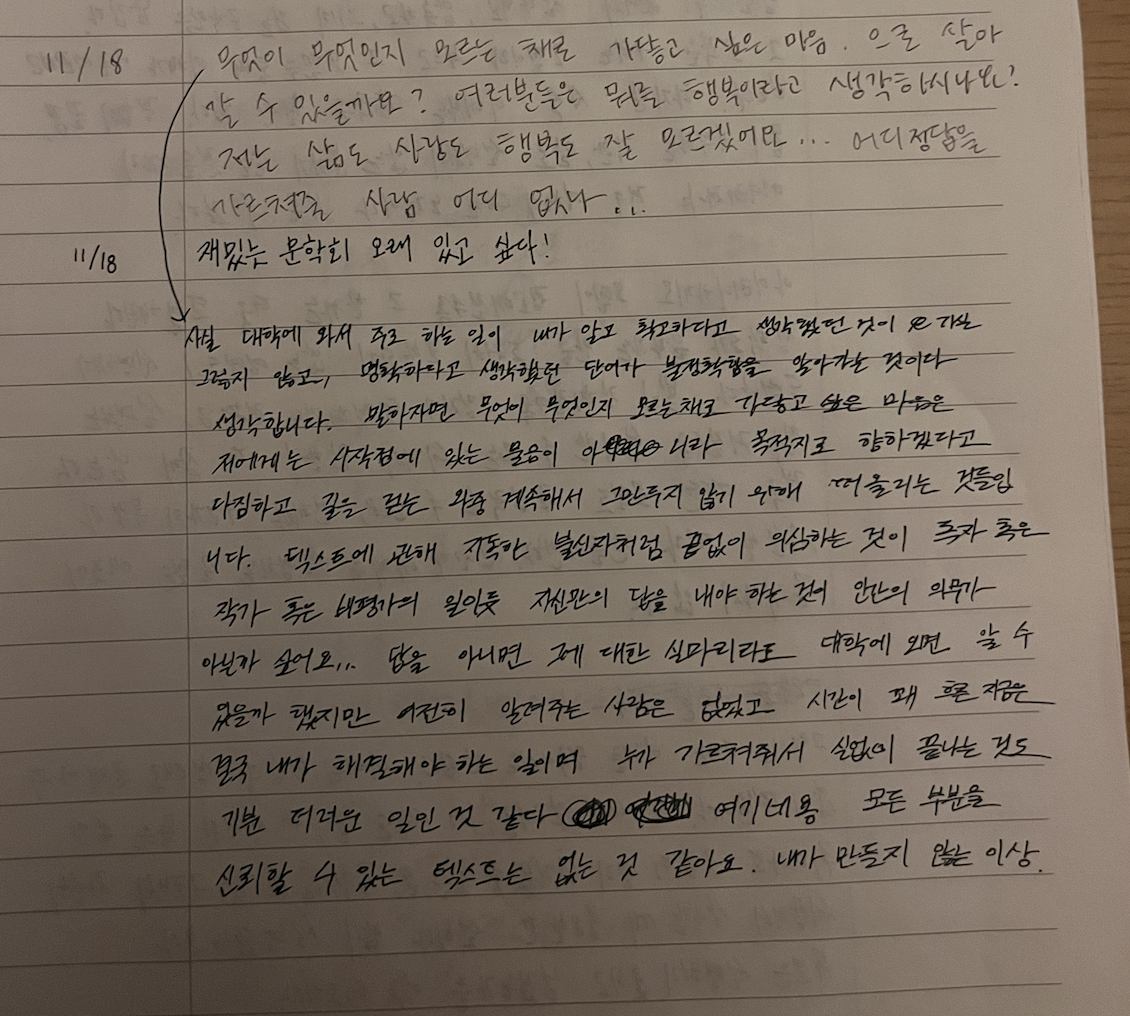 11/18 무엇이 무엇인지 모르는 채로 가닿고 싶은 마음. 으로 살아
갈 수 있을까요? 여러분들은 뭐를 행복이라고 생각하시나요?
저는 삶도 사랑도 행복도 잘 모르겠어요... 어디 정답을
가르쳐줄 사람 어디 없나...
11/18 재밌는 문학회 오래 있고 싶다!
사실 대학에 와서 주로 하는 일이 내가 알고 확고하다고 생각했던 것이 사실
그렇지 않고, 명확하다고 생각했던 단어가 불정확함을 알아가는 것이다
생각합니다. 말하자면 무엇이 무엇인지 모르는 채로 가닿고 싶은 마음은
저에게는 시작점에 있는 물음이 아니라 목적지로 향하겠다고
다짐하고 길을 걷는 와중 계속해서 그만두지 않기 위해 떠올리는 것들입
니다. 텍스트에 관해 지독한 불신자처럼 끝없이 의심하는 것이 독자 혹은
작가 혹은 비평가의 일인듯 자신만의 답을 내야 하는 것이 인간의 의무가
아닐까 싶어요... 답을 아니면 그에 대한 실마리라도 대학에 오면 알 수
있을까 했지만 여전히 알려주는 사람은 없었고 시간이 꽤 흐른 지금은
결국 내가 해결해야 하는 일이며 누가 가르쳐줘서 실없이 끝나는 것도
기분 더러운 일인 것 같다 여기네용 모든 부분을
신뢰할 수 있는 텍스트는 없는 것 같아요. 내가 만들지 않는 이상.